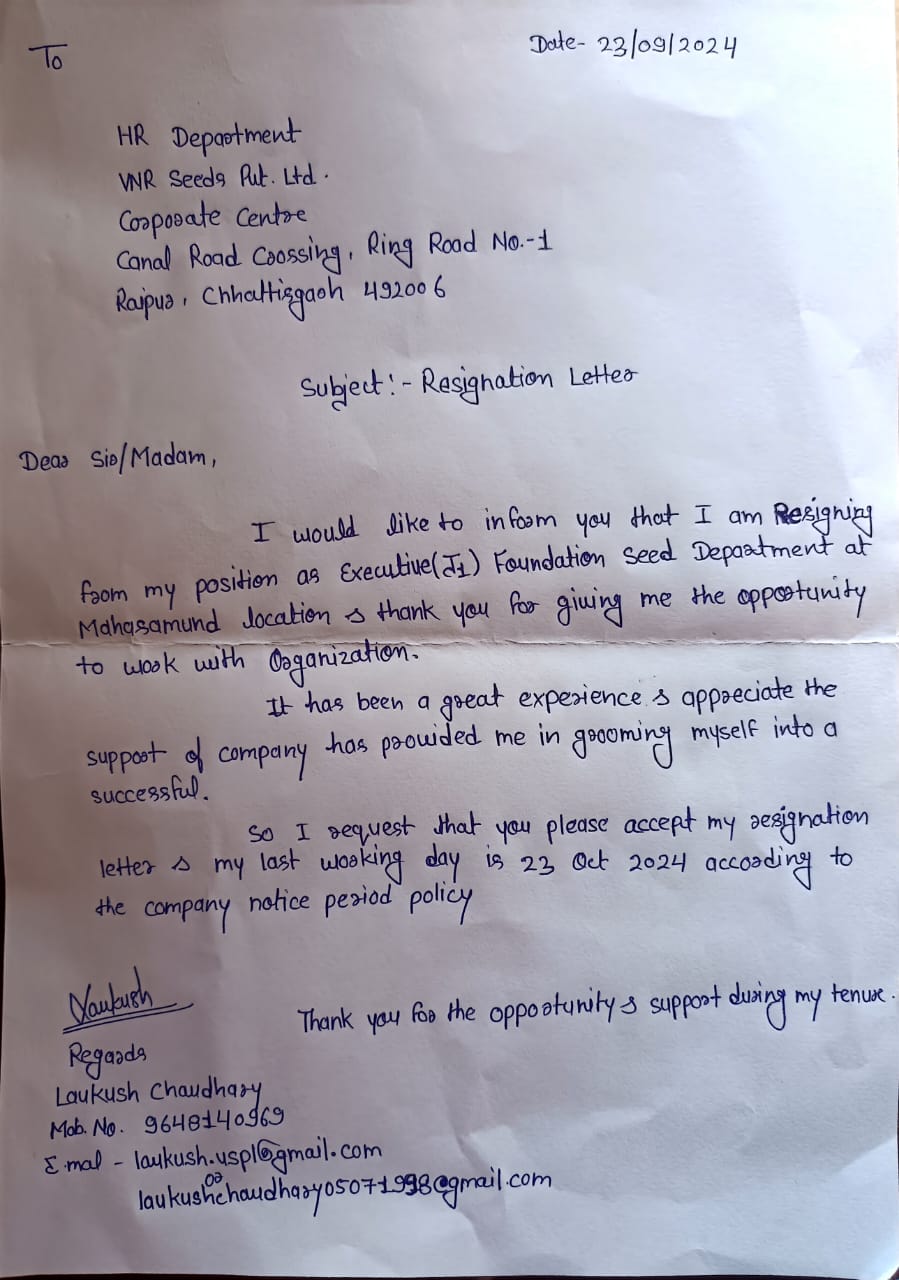 To
Date- 23/09/2024
HR Department
VNR Seeds Pvt. Ltd.
Corporate Centre
Canal Road Crossing, Ring Road No.-1
Raipur, Chhattisgarh 492006
Subject:- Resignation Letter
Dear Sir/Madam,
I would like to inform you that I am Resigning
from my position as Executive(J1) Foundation Seed Department at
Mahasamund location & thank you for giving me the opportunity
to work with Organization.
It has been a great experience & appreciate the
support of company has provided me in grooming myself into a
successful.
So I request that you please accept my resignation
letter & my last working day is 23 Oct 2024 according to
the company notice period policy
Thank you for the opportunity & support during my tenure.
Laukush
Regards
Laukush Chaudhary
Mob. No. 9648140969
E.mal - laukush.uspl@gmail.com
or
laukushchaudhary05071998@gmail.com